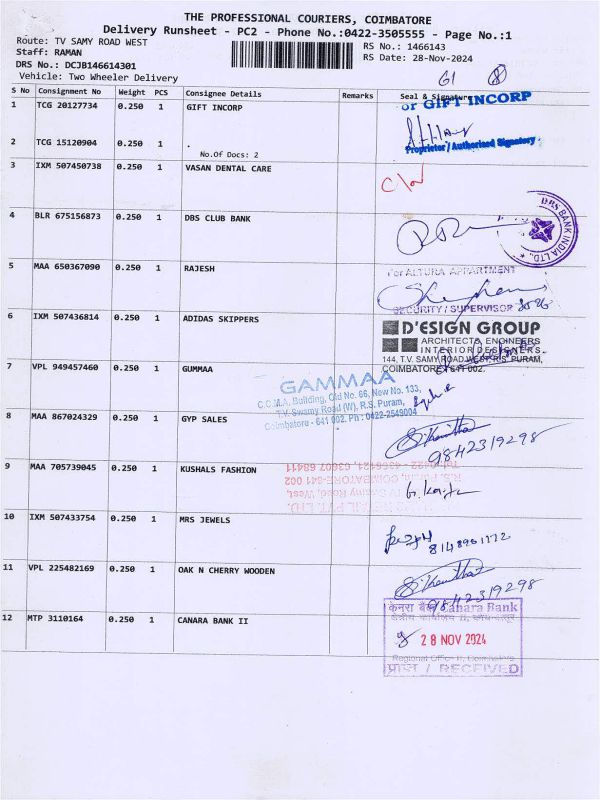 THE PROFESSIONAL COURIERS, COIMBATORE
Delivery Runsheet - PC2 - Phone No.:0422-3505555 - Page No.:1
Route: TV SAMY ROAD WEST
RS No.: 1466143
Staff: RAMAN
RS Date: 28-Nov-2024
DRS No.: DCJB146614301
Vehicle: Two Wheeler Delivery
61 8
S No Consignment No Weight PCS Consignee Details Remarks Seal & Signature
1 TCG 20127734 0.250 1 GIFT INCORP
or GIFT INCORP
Proprietor / Authorised Signatory
2 TCG 15120904 0.250 1 .
No.Of Docs: 2
3 IXM 507450738 0.250 1 VASAN DENTAL CARE
4 BLR 675156873 0.250 1 DBS CLUB BANK
DBS BANK INDIA LTD.
5 MAA 650367090 0.250 1 RAJESH
For ALTURA APPARTMENT
SECURITY / SUPERVISOR
6 IXM 507436814 0.250 1 ADIDAS SKIPPERS
D'ESIGN GROUP
ARCHITECTS, ENGINEERS
INTERIOR DESIGNERS
144, T.V. SAMY ROAD WEST R.S. PURAM,
COIMBATORE 641 002.
7 VPL 949457460 0.250 1 GUMMAA
GAMMAA
C.C.M.A. Building, Old No. 66, New No. 133,
T.V. Swamy Road (W), R.S. Puram,
Coimbatore - 641 002. Ph : 0422-2549004
8 MAA 867024329 0.250 1 GYP SALES
9842319298
9 MAA 705739045 0.250 1 KUSHALS FASHION
R.S. Puram, COIMBATORE-641 002
10 IXM 507433754 0.250 1 MRS JEWELS
11 VPL 225482169 0.250 1 OAK N CHERRY WOODEN
9842319298
12 MTP 3110164 0.250 1 CANARA BANK II
Canara Bank
28 NOV 2024
प्राप्त / RECEIVED